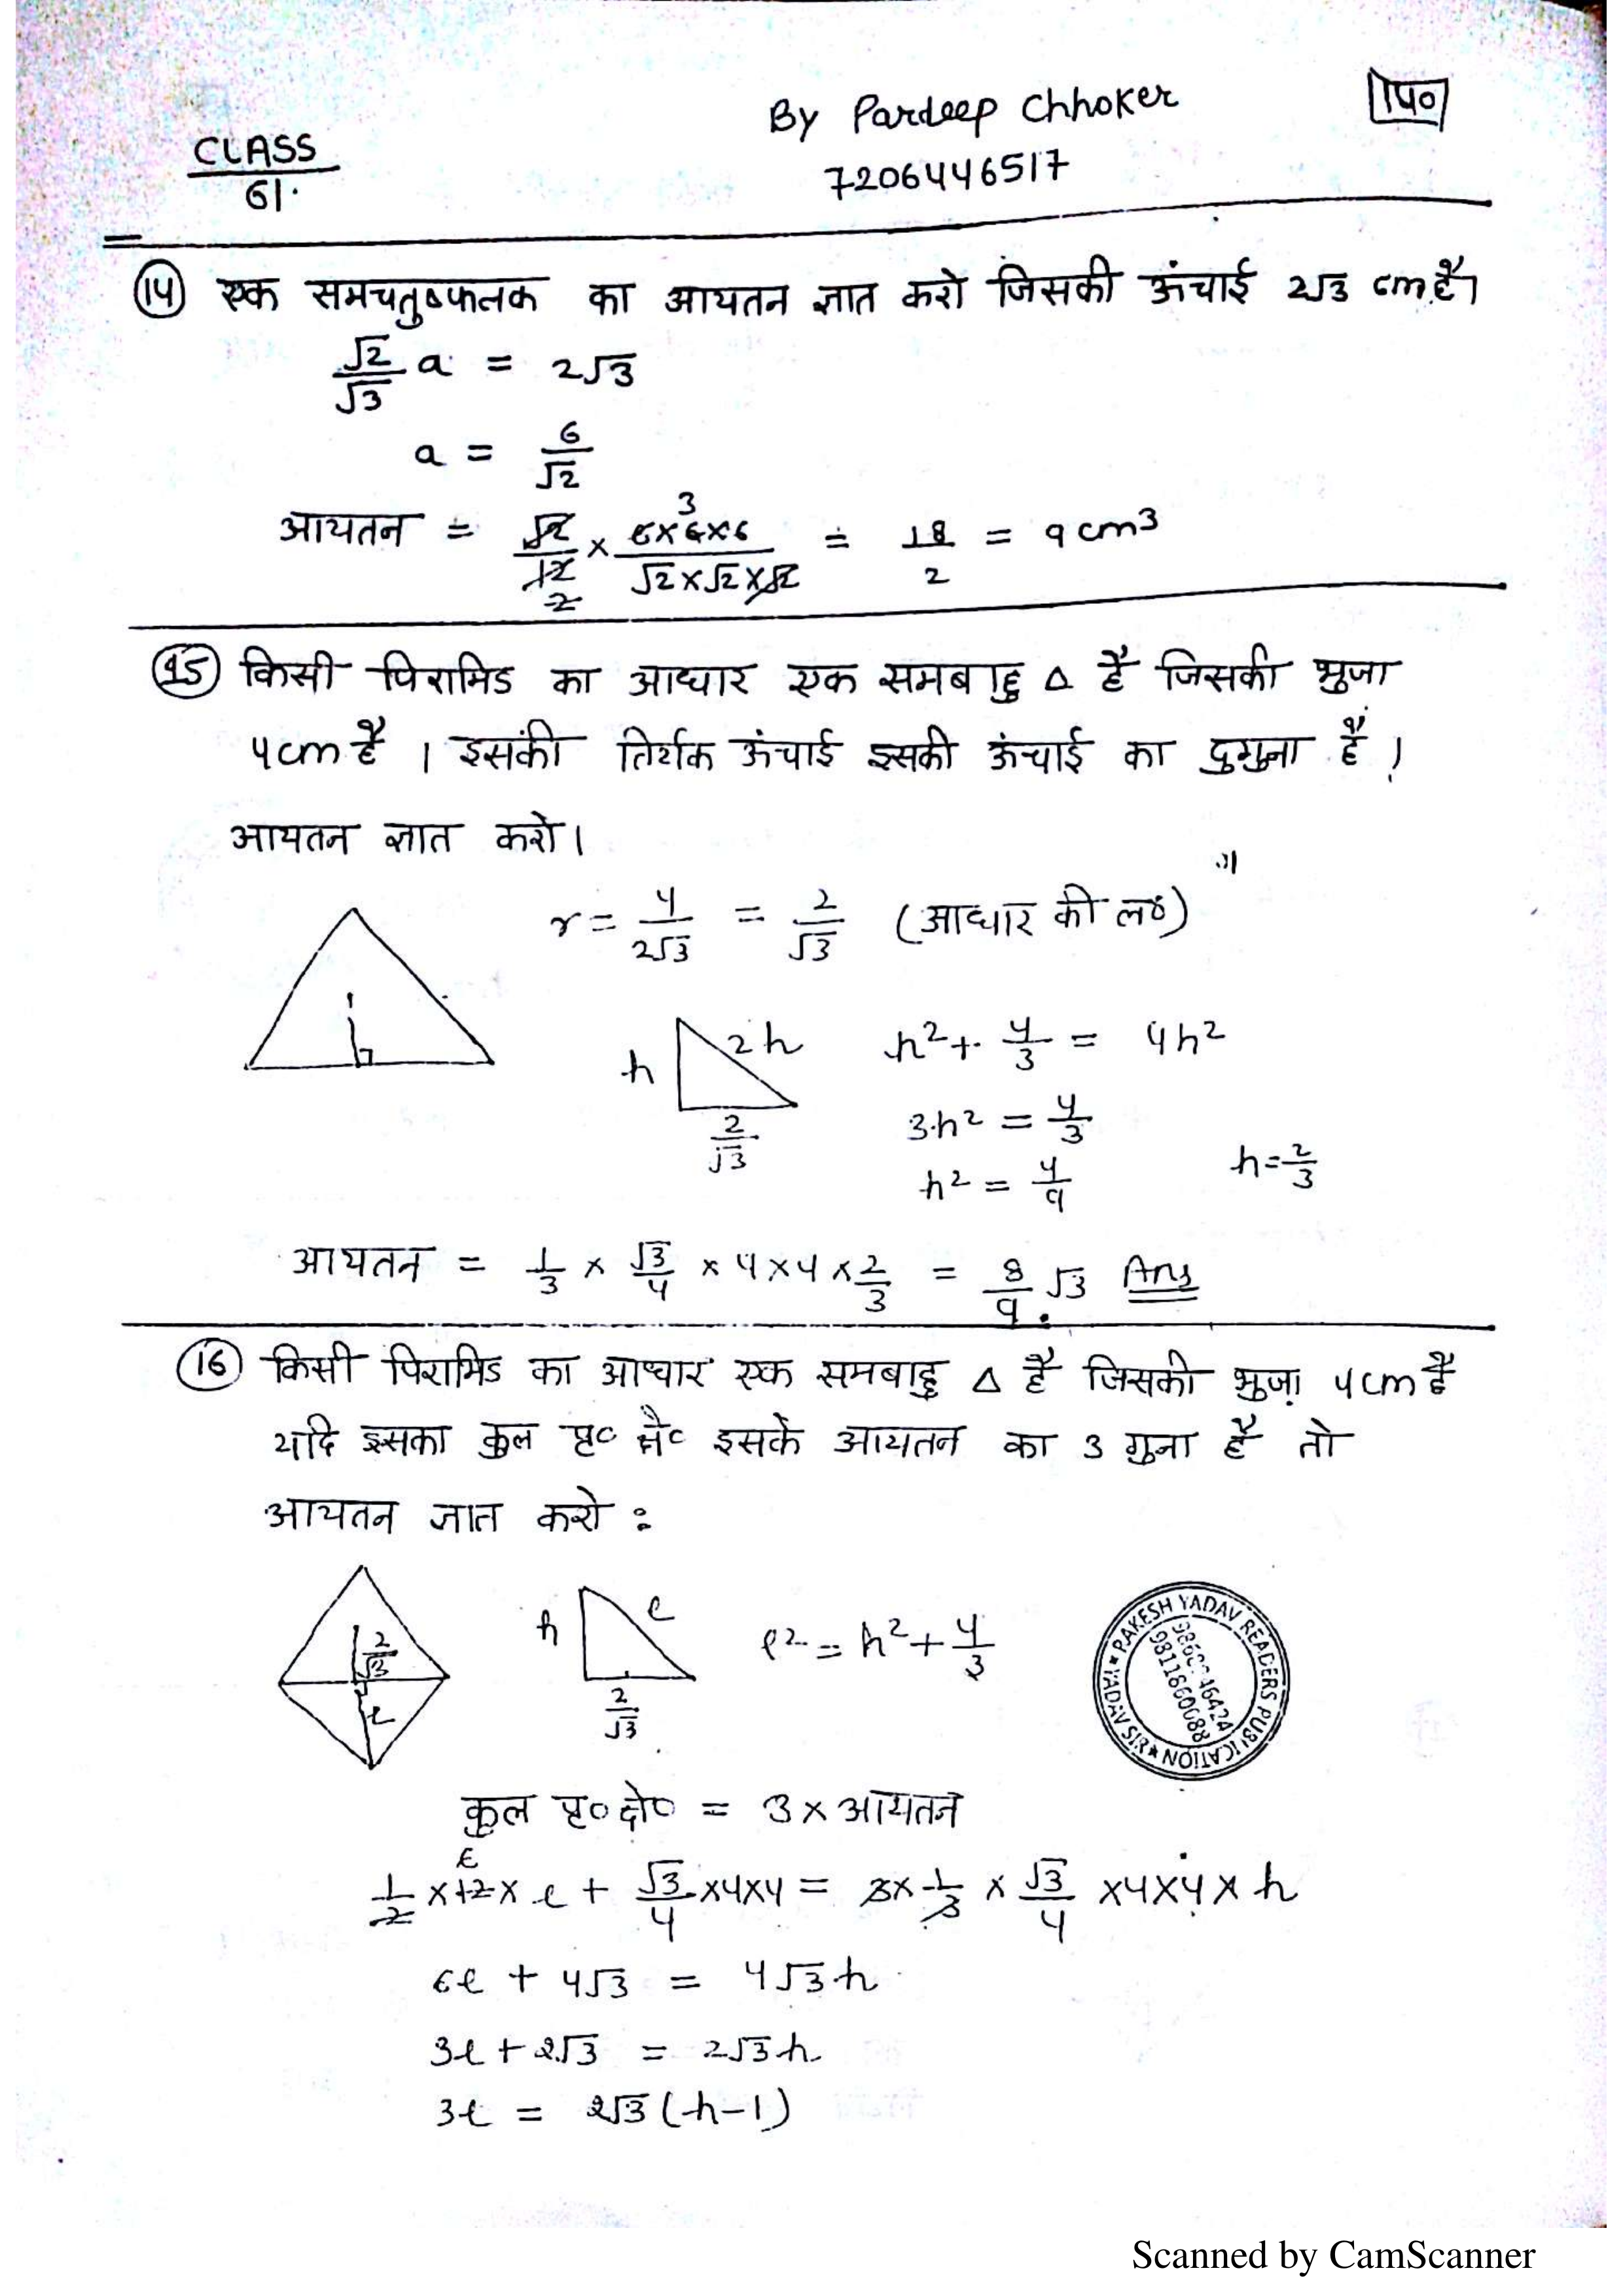 By Pardeep Chhoker
140
CLASS
61.
7206446517
(14) एक समचतुष्फलक का आयतन ज्ञात करो जिसकी ऊंचाई 2√3 cm है।
√2/√3 a = 2√3
a = 6/√2
आयतन = √2/12 × 6×6×6/√2×√2×√2 = 18/2 = 9 cm³
3
2
(15) किसी पिरामिड का आधार एक समबाहु △ है जिसकी भुजा
4cm है । इसकी तिर्यक ऊंचाई इसकी ऊंचाई का दुगुना है ।
आयतन ज्ञात करो।
r = 4/2√3 = 2/√3 (आधार की लo)
h 2h 2/√3
h² + 4/3 = 4h²
3h² = 4/3
h² = 4/9 h = 2/3
आयतन = 1/3 × √3/4 × 4×4×2/3 = 8/9 √3 Ans
(16) किसी पिरामिड का आधार एक समबाहु △ है जिसकी भुजा 4cm है
यदि इसका कुल पृ० क्षे० इसके आयतन का 3 गुना है तो
आयतन ज्ञात करो :
2/√3 l
h l 2/√3
l² = h² + 4/3
RAKESH YADAV READERS PUBLICATION ★ YADAV SIR ★
9811860688
कुल पृ० क्षे० = 3 × आयतन
6
1/2 × 12 × l + √3/4 ×4×4 = 3× 1/3 × √3/4 ×4×4× h
6l + 4√3 = 4√3 h
3l + 2√3 = 2√3 h
3l = 2√3 (h-1)
Scanned by CamScanner